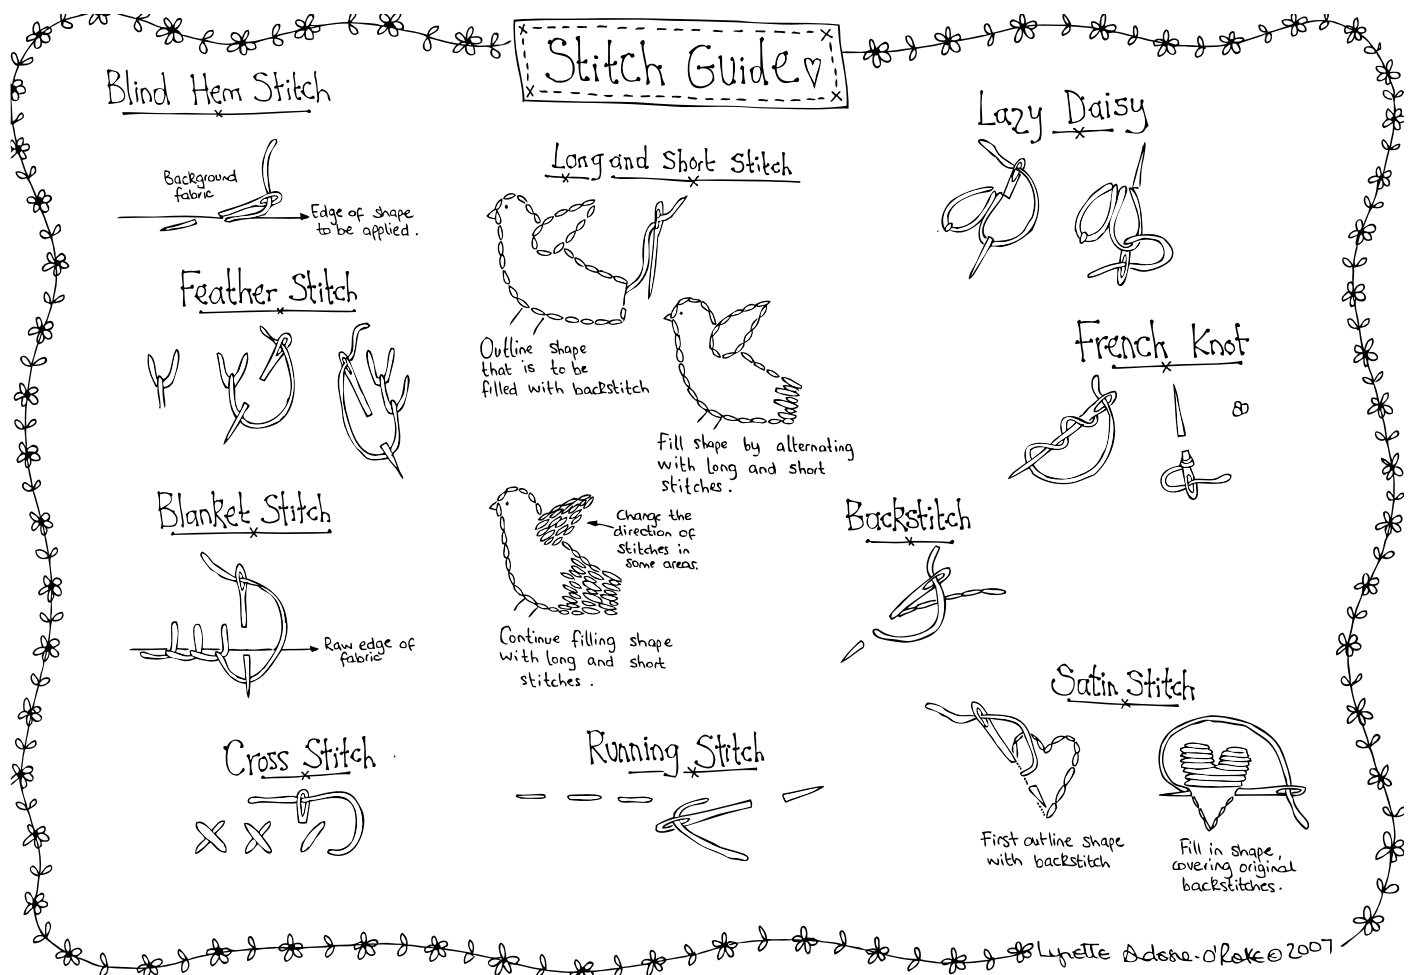 Stitch Guide
Blind Hem Stitch
Background
fabric
Edge of shape
to be applied.
Feather Stitch
Blanket Stitch
Raw edge of
fabric
Cross Stitch
Long and Short Stitch
Outline shape
that is to be
filled with backstitch
Fill shape by alternating
with long and short
stitches.
Change the
direction of
stitches in
some areas.
Continue filling shape
with long and short
stitches.
Running Stitch
Lazy Daisy
French Knot
Backstitch
Satin Stitch
First outline shape
with backstitch
Fill in shape,
covering original
backstitches.
Lynette © 2007